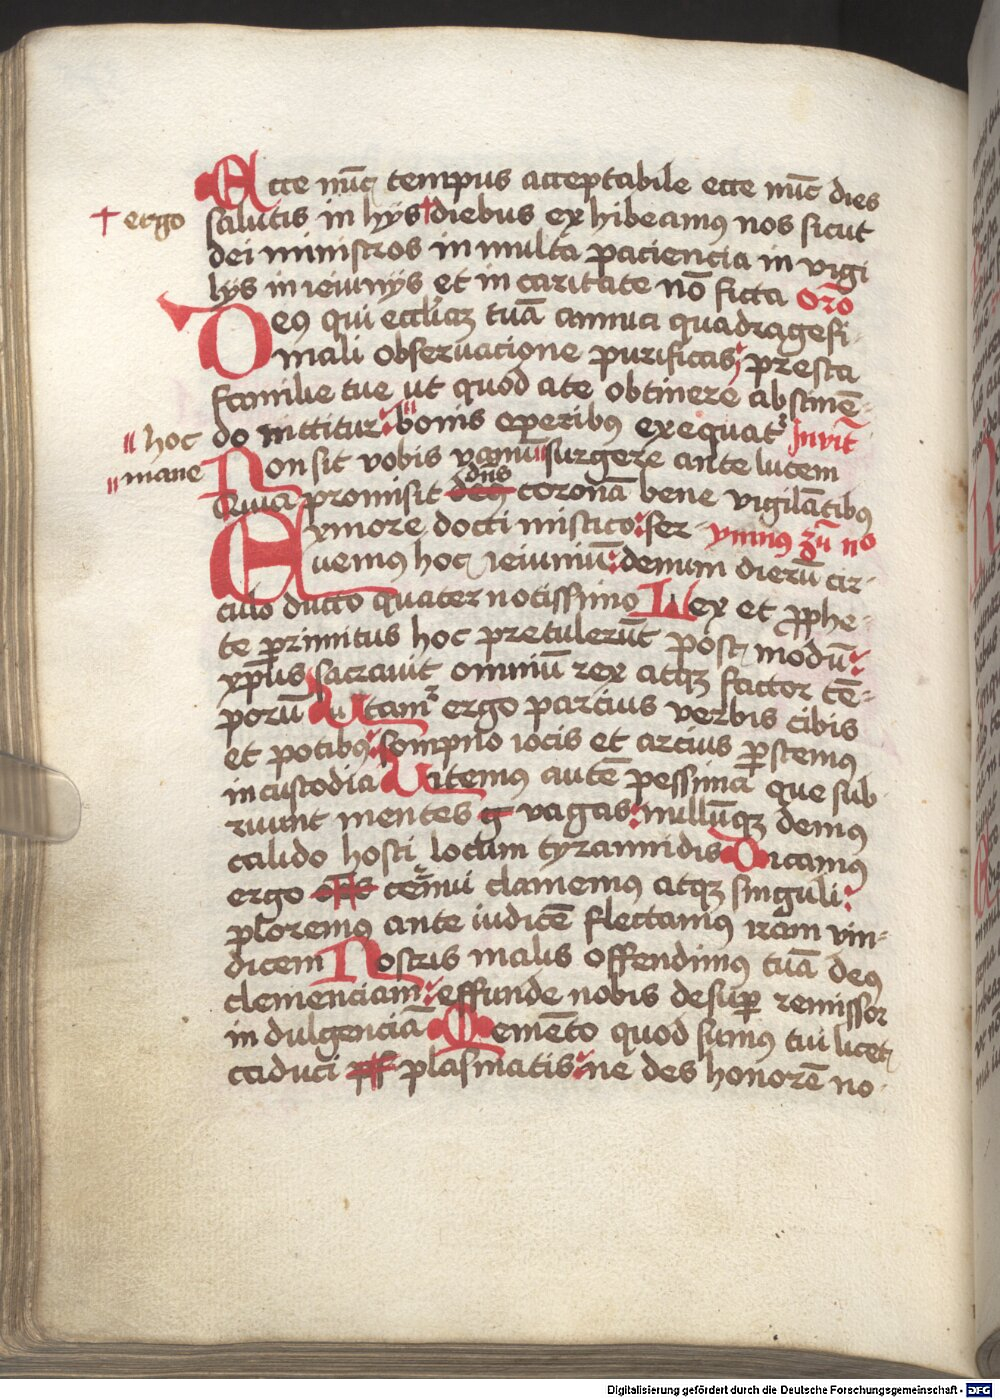 Ecce nūc tempus acceptabile ecce nūc dies
† ergo
salutis in hijs † diebus exhibeamus nos sicut
dei ministros in multa paciencia in vigi
lijs in ieiunijs et in caritate nō ficta orō
Deꝰ qui eccliaꝫ tuā annua quadragesi-
mali obseruacione purificas: presta
familie tue ut quod a te obtinere abstinē-
" hoc
do nittitur: " bonis operibꝰ exequatᷣ Invit
" mane
Non sit vobis vanū " surgere ante lucem
Quia promisit deꝰ dn̄s coronā bene vigilātibꝰ
Ex more docti mistico: ser- ymnus zū no
uemꝰ hoc ieiuniū: denum dierū cir-
culo ducto quater notissimo Lex et ꝓphe-
te primitus hoc pretulerūt postmodū:
xp̄us sacrauit omniū rex atqꝫ factor tē-
porū Vtamᷣ ergo parcius verbis cibis
et potibꝰ: sompno iocis et arcius ꝑstemꝰ
in custodia Vitemꝰ autē pessima que sub-
ruunt mentes g vagas: nullūqꝫ demꝰ
calido hosti locum tyrannidis Dicamꝰ
ergo om̄s cernui clamemꝰ atqꝫ singuli:
ploremꝰ ante iudicē flectamus iram vin-
dicem Nostris malis offendimꝰ tuā deꝰ
clemenciam: effunde nobis desuꝑ remissor
indulgenciā Memēto quod sumꝰ tui licet
caduci plasmatis: ne des honorē no-
Digitalisierung gefördert durch die Deutsche Forschungsgemeinschaft - DFG